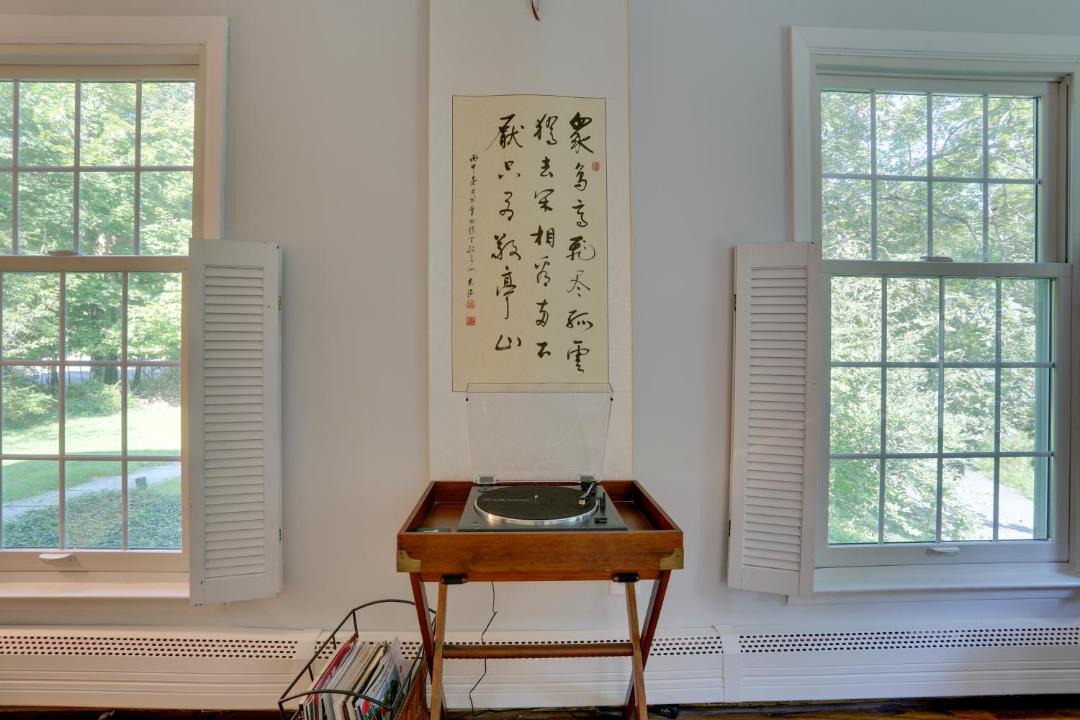 眾鳥高飛尽孤雲
獨去閑相看両不
厭只有敬亭山